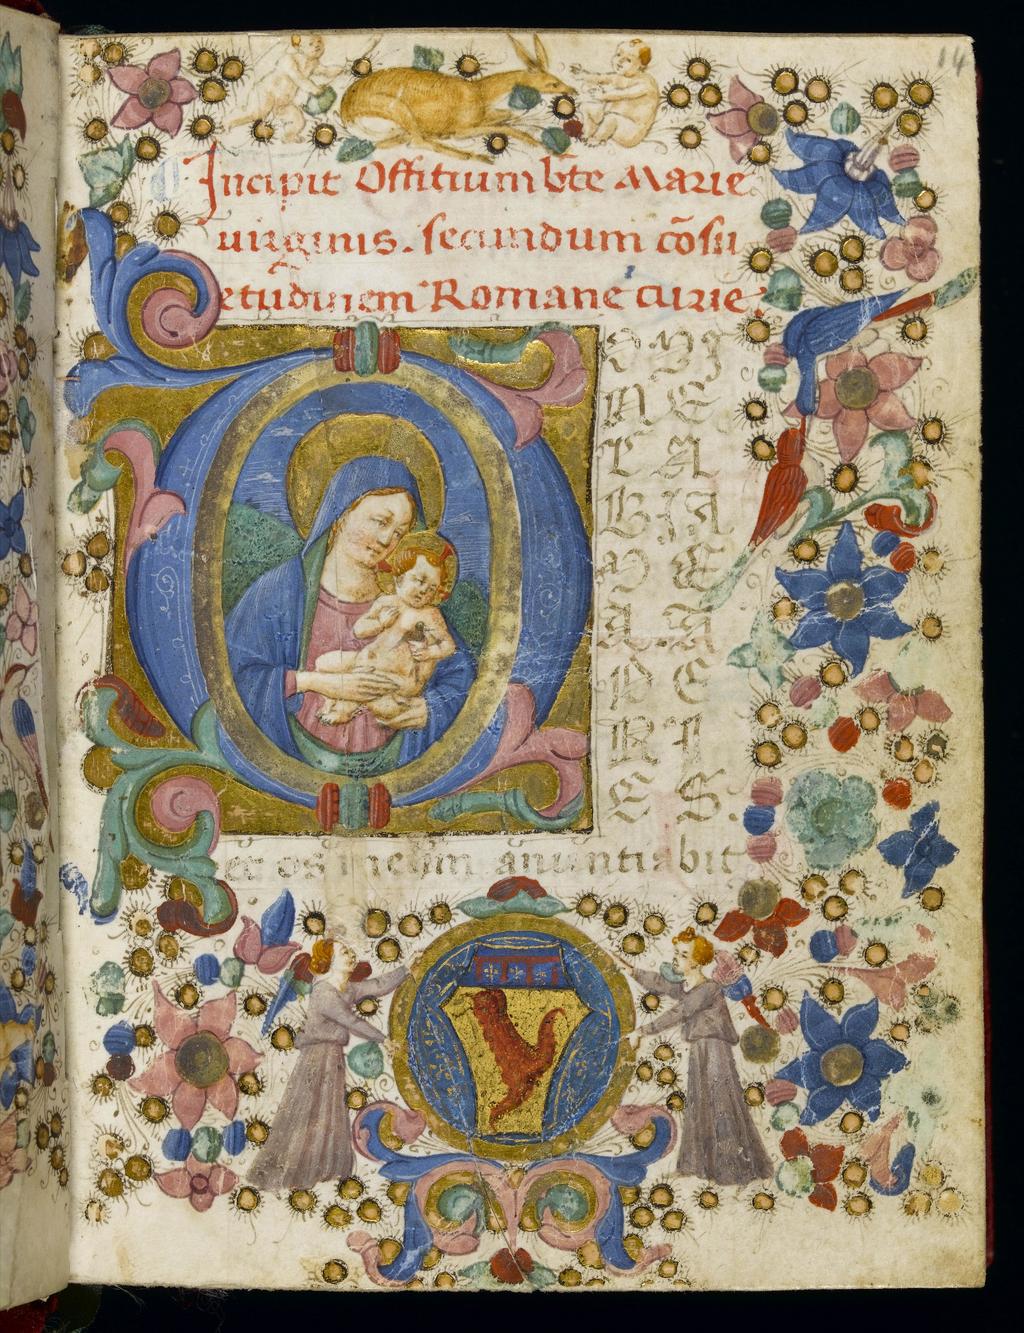 14
Incipit Offitium bte Marie
virginis. secundum cōsu
etudinem Romane curie
D O M I
N E
L A
B I A
M E
A A
P E
R I
E S.
et os meum anuntiabit